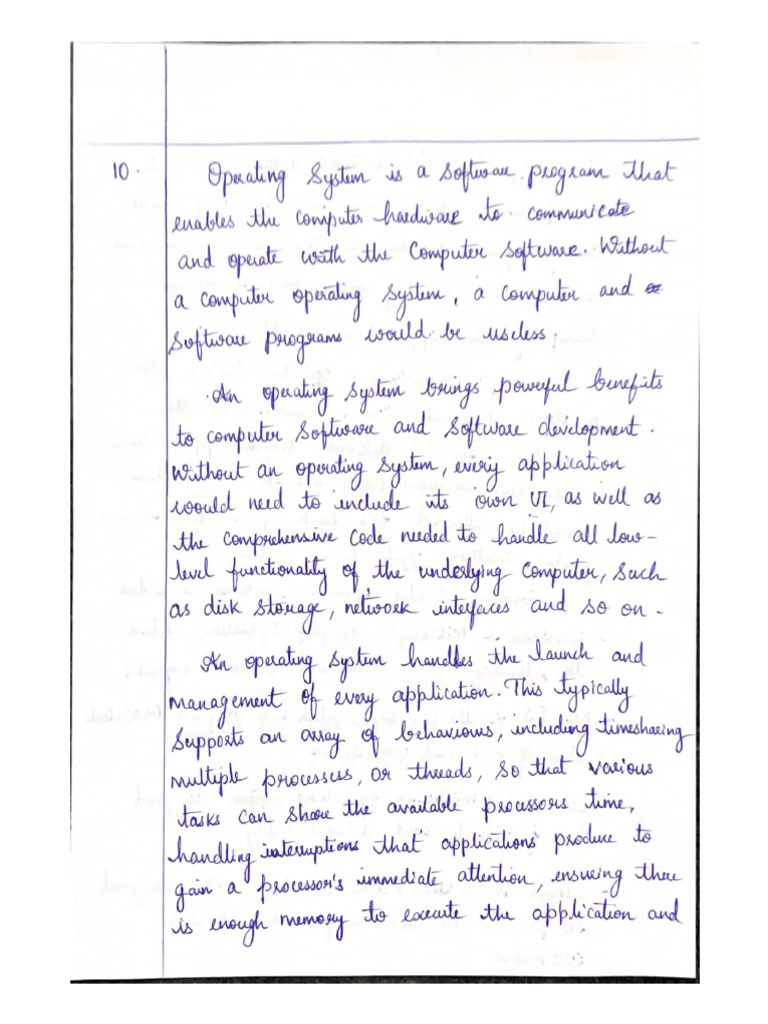 10. Operating System is a software program that
enables the computer hardware to communicate
and operate with the Computer Software. Without
a computer operating System, a computer and
Software programs would be useless.
An operating System brings powerful benefits
to computer Software and Software development.
Without an operating System, every application
would need to include its own UI, as well as
the comprehensive code needed to handle all low-
level functionality of the underlying Computer, such
as disk storage, network interfaces and so on.
An operating System handles the launch and
management of every application. This typically
Supports an array of behaviours, including timesharing
multiple processess, or threads, so that various
tasks can share the available processors time,
handling interruptions that applications produce to
gain a processor's immediate attention, ensuring there
is enough memory to execute the application and